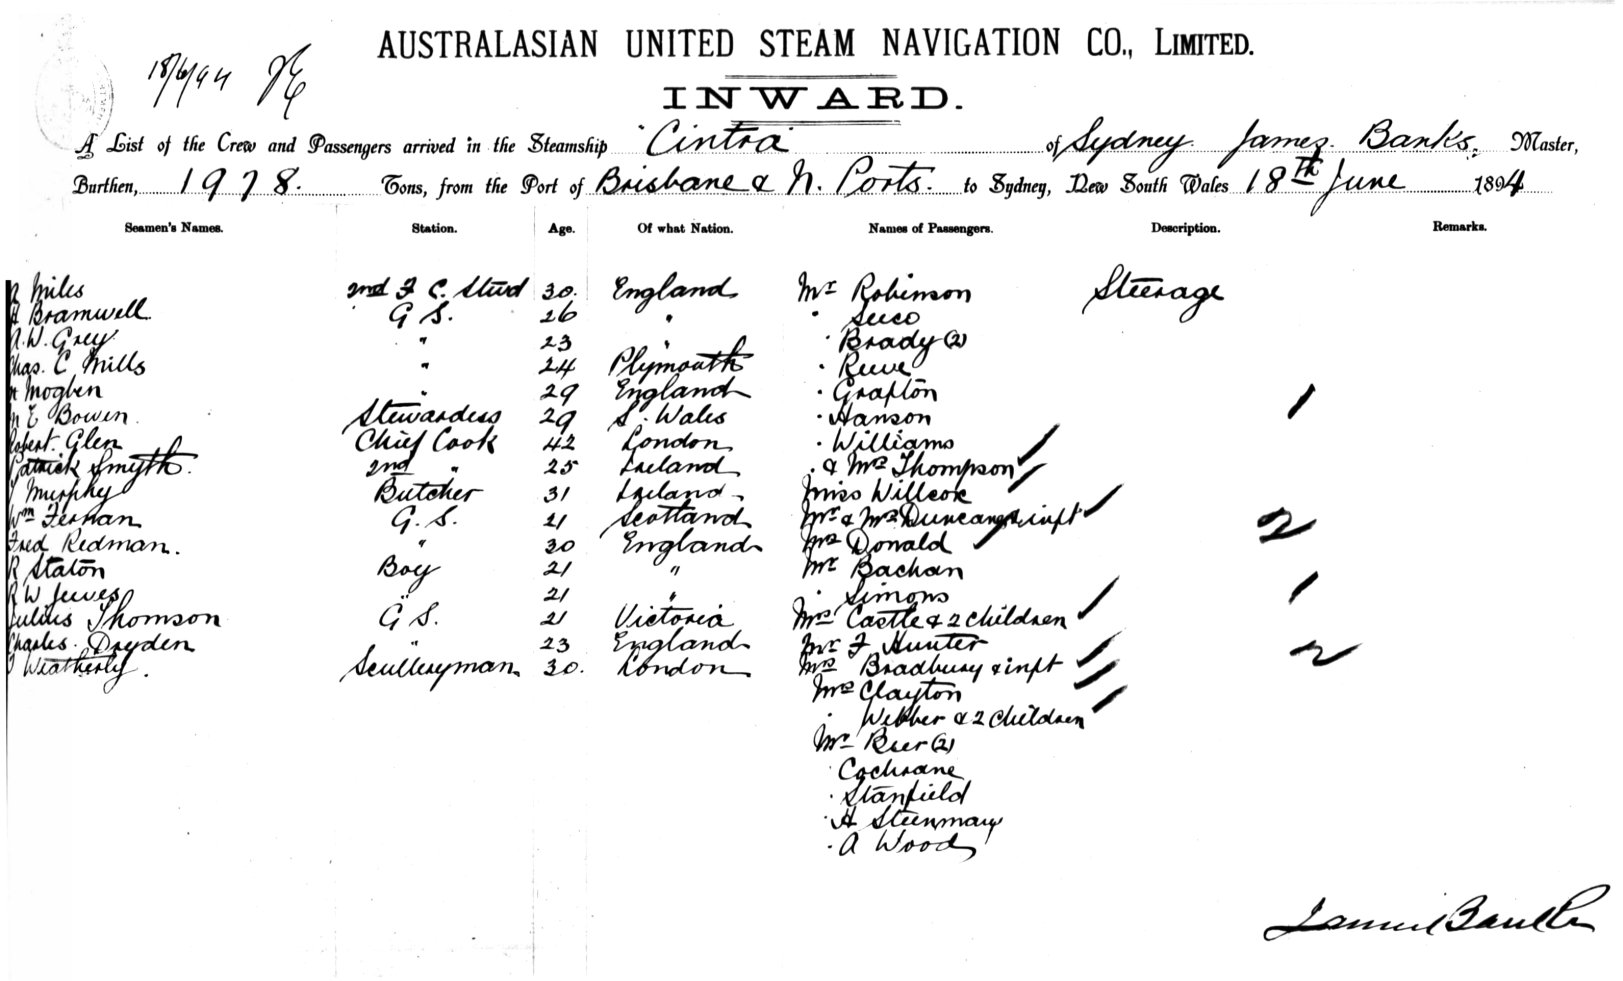 18/6/94
AUSTRALASIAN UNITED STEAM NAVIGATION CO., LIMITED.
INWARD.
A List of the Crew and Passengers arrived in the Steamship "Cintra" of Sydney. James Banks. Master,
Burthen, 1978. Tons, from the Port of Brisbane & N. Ports. to Sydney, New South Wales 18th June 1894
Seamen's Names. Station. Age. Of what Nation. Names of Passengers. Description. Remarks.
Miles 2nd F. C. Stwd 30. England Mr Robinson Steerage
H Bramwell. G S. 26 " " Seeco
A.W. Grey " 23 " " Brady (2)
Chas. C Mills " 24 Plymouth " Reeve
Mogben " 29 England " Grafton 1
E Bowen. Stewardess 29 S. Wales " Hanson
Robert. Glen Chief Cook 42 London " Williams
Patrick Smyth. 2nd " 25 Ireland " & Mrs Thompson
Murphy Butcher 31 Ireland Miss Willcox
Wm Fernan G. S. 21 Scotland Mr & Mrs Duncan & inft 2
Fred Redman. " 30 England Mrs Donald
R Staton Boy 21 " Mr Bachan
R W Jeeves " 21 " " Simons 1
Julius Thomson G S. 21 Victoria Mrs Castle & 2 children
Charles. Dryden " 23 England Mr F Hunter
Weatherly. Sculleryman 30. London Mrs Bradbury & inft 2
Mrs Clayton
" Webber & 2 children
Mr Beer (2)
" Cochrane
" Stanfield
" H Steenmary
" A Wood
James Banks